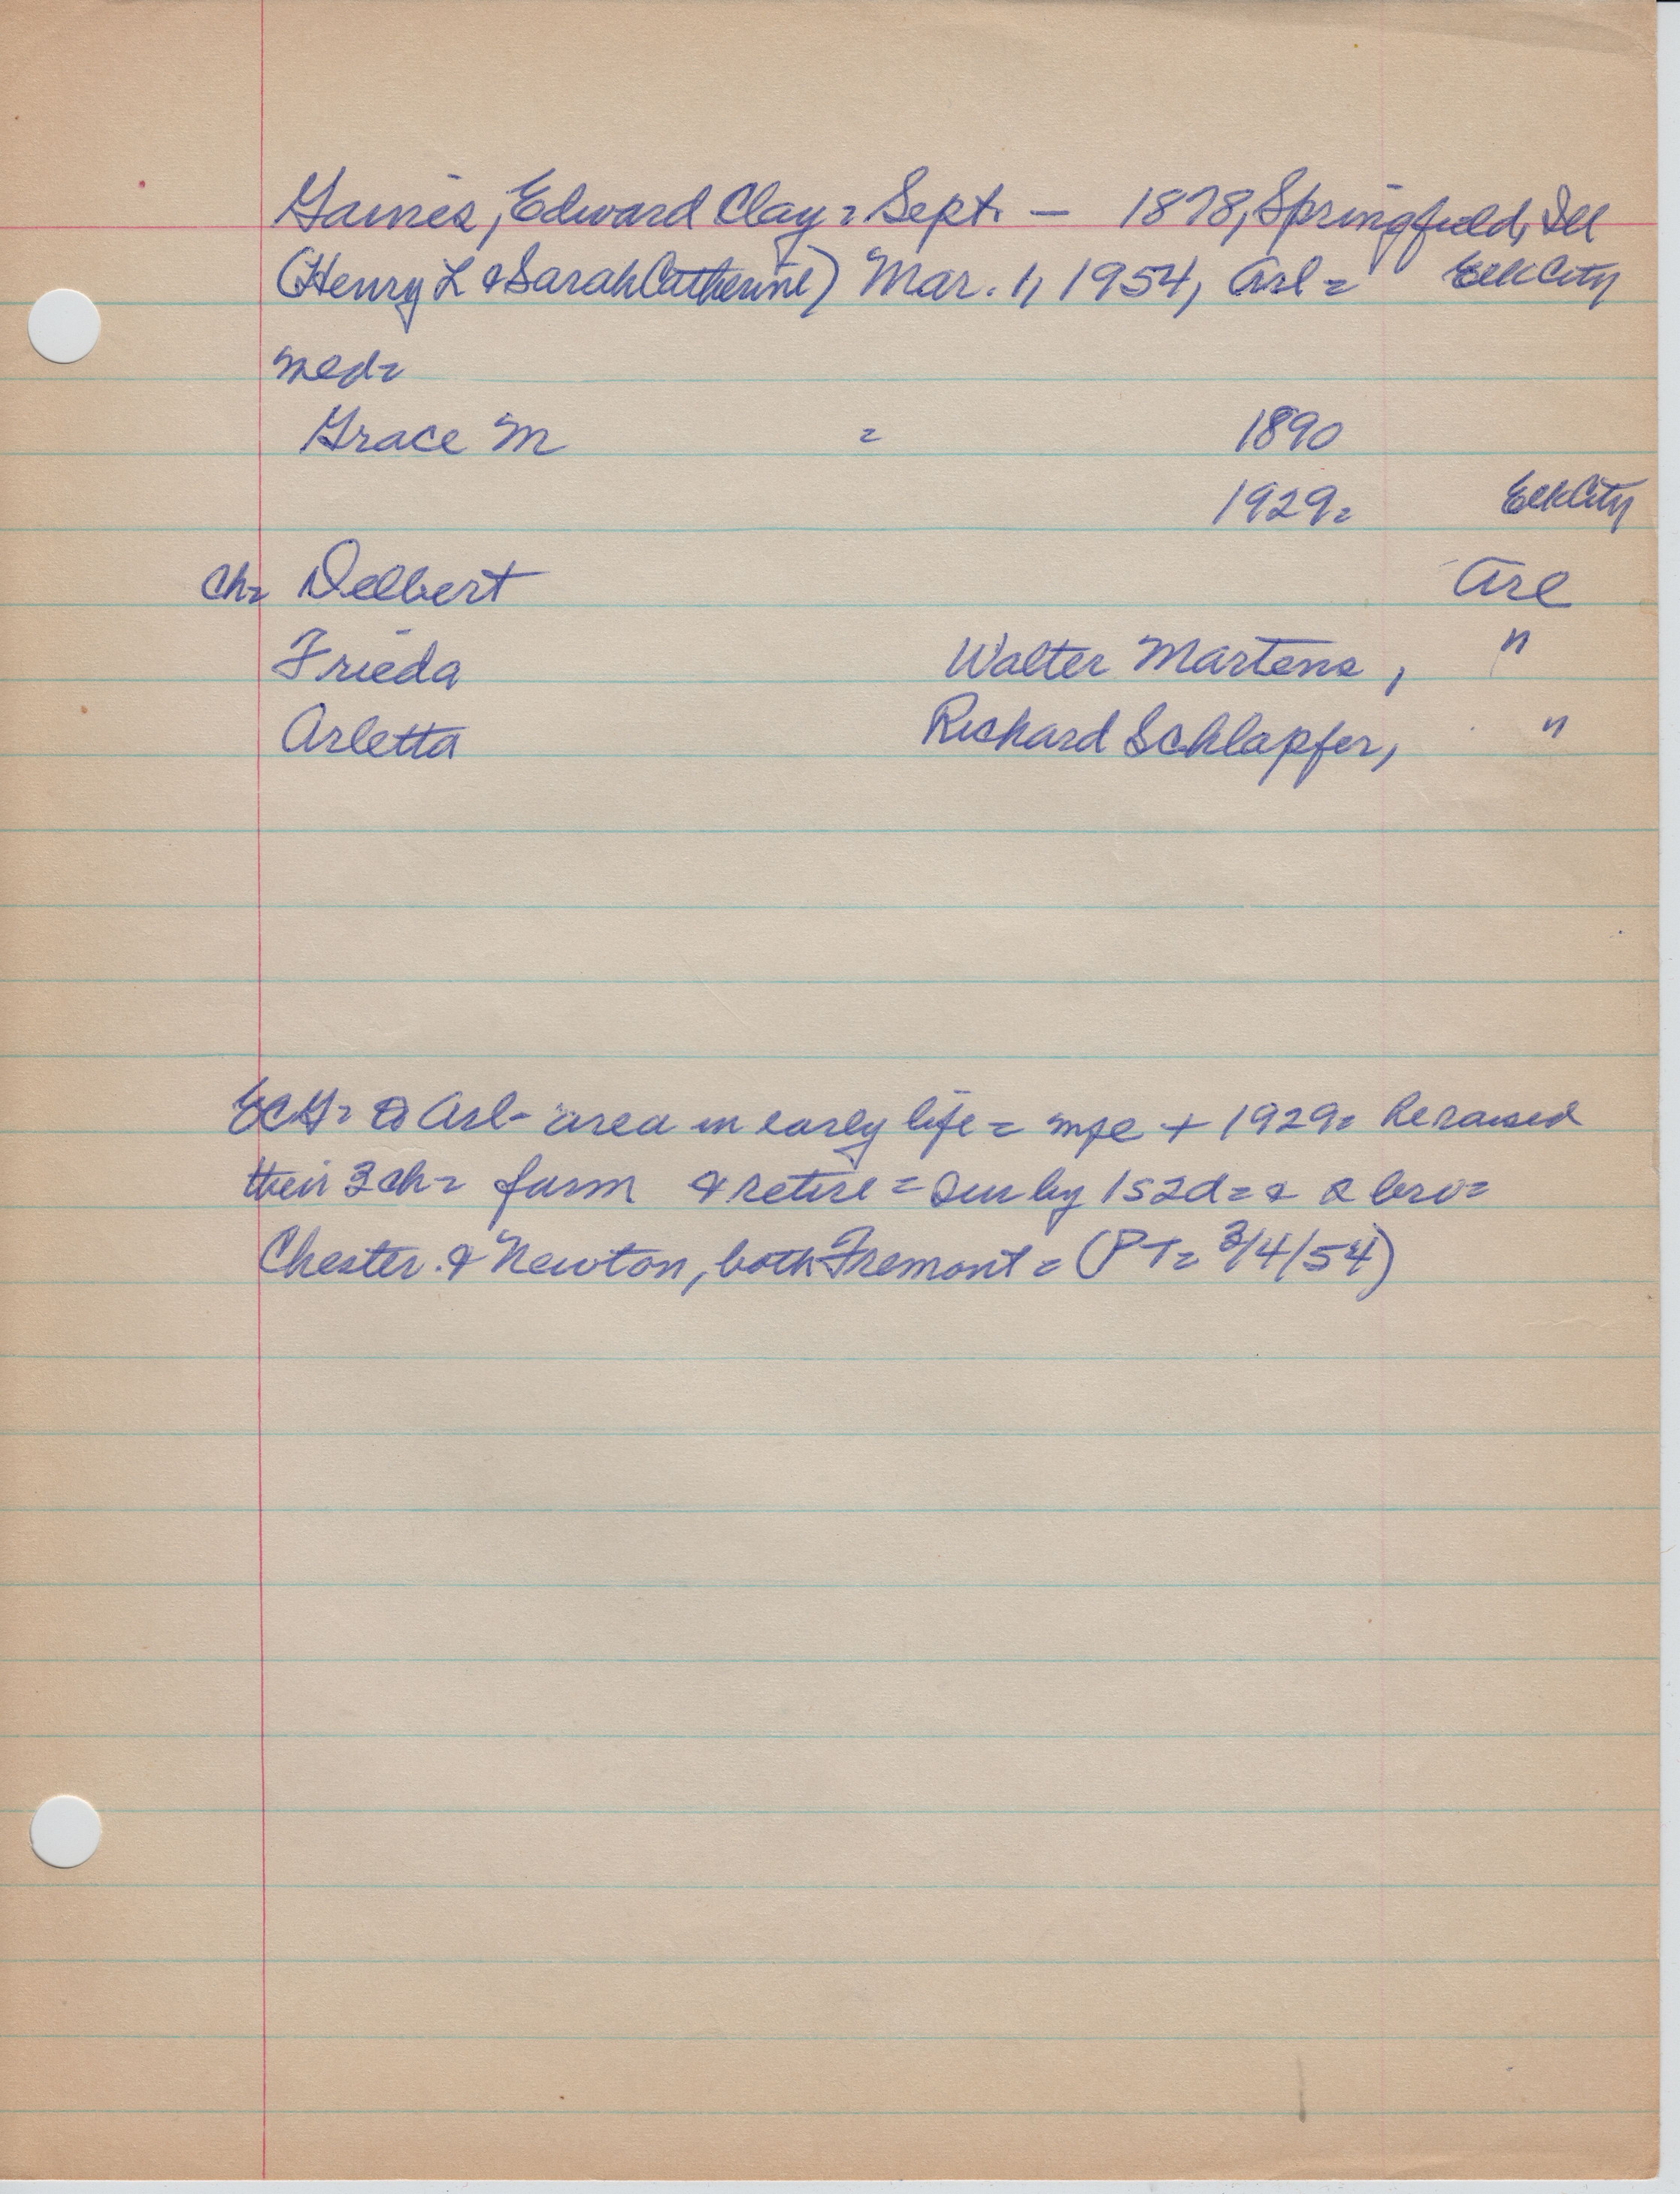 Gaines, Edward Clay = Sept. — 1878, Springfield, Ill
(Henry L & Sarah Catherine) Mar. 1, 1954, Arl = Elk City
med =
Grace M = 1890
1929 = Elk City
ch = Delbert Arl
Frieda Walter Martens, "
Arletta Richard Schlapfer, "
ECG = Arl- area in early life = + 1929 = He raised
their 3 ch = farm & retire = sur by 1s 2d = & 2 bro =
Chester & Newton, both Fremont = (PT = 3/4/54)